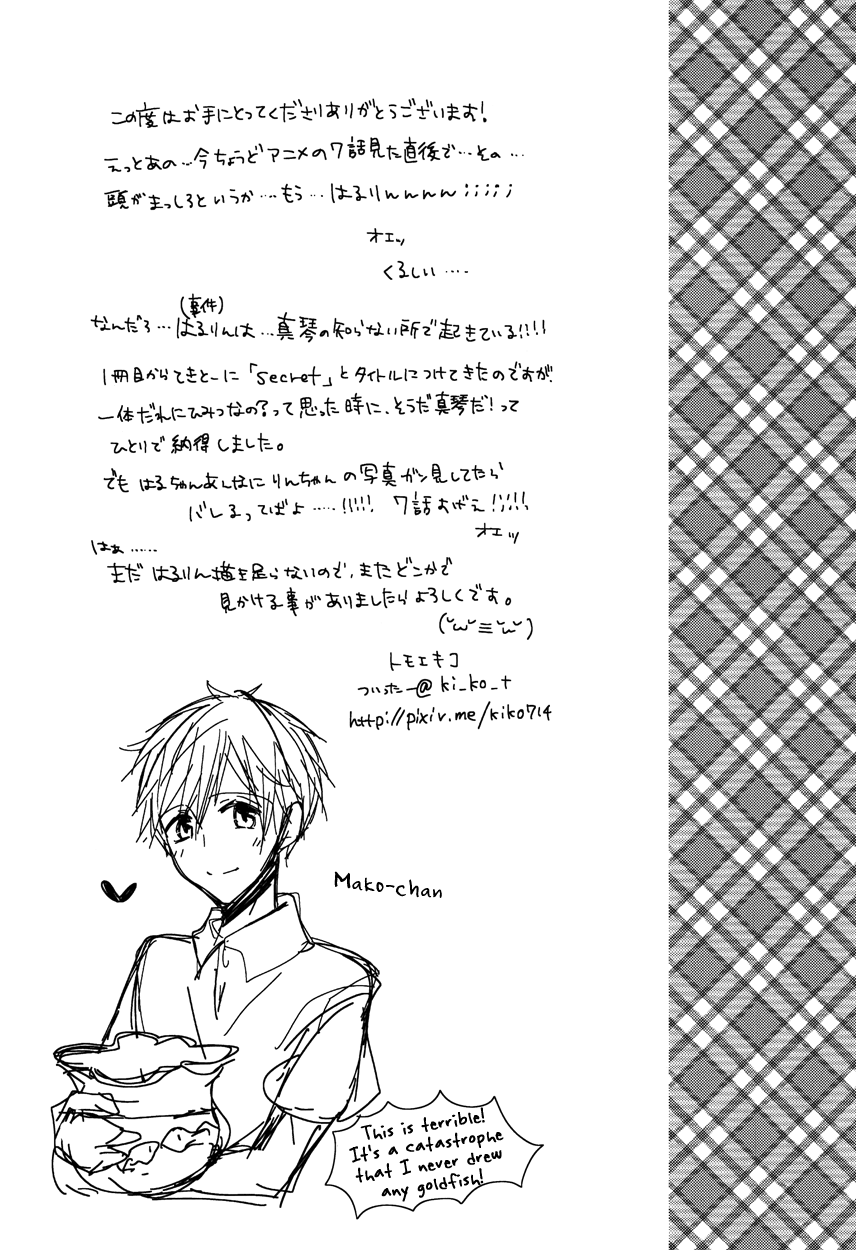 この度はお手にとってくださりありがとうございます!
えっとあの…今ちょうどアニメの7話見た直後で…その…
頭がまっしろというか…もう…はるりんんんん;;;;;
オエッ
くるしい….
(事件)
なんだろ…はるりんは…真琴の知らない所で起きている!!!!
1冊目からてきとーに「secret」とタイトルにつけてきたのですが、
一体だれにひみつなの?って思った時に、そうだ真琴だ!って
ひとりで納得しました。
でもはるちゃんあんなにりんちゃんの写真ガン見してたら
バレるってばよ……!!!!! 7話おがえ!!!!!
オエッ
はぁ……
まだはるりん描き足らないので、またどこかで
見かける事がありましたらよろしくです。
(˘ω˘≡˘ω˘)
トモエキコ
ついったー@ki_ko_t
http://pixiv.me/kiko714
Mako-chan
This is terrible!
It's a catastrophe
that I never drew
any goldfish!